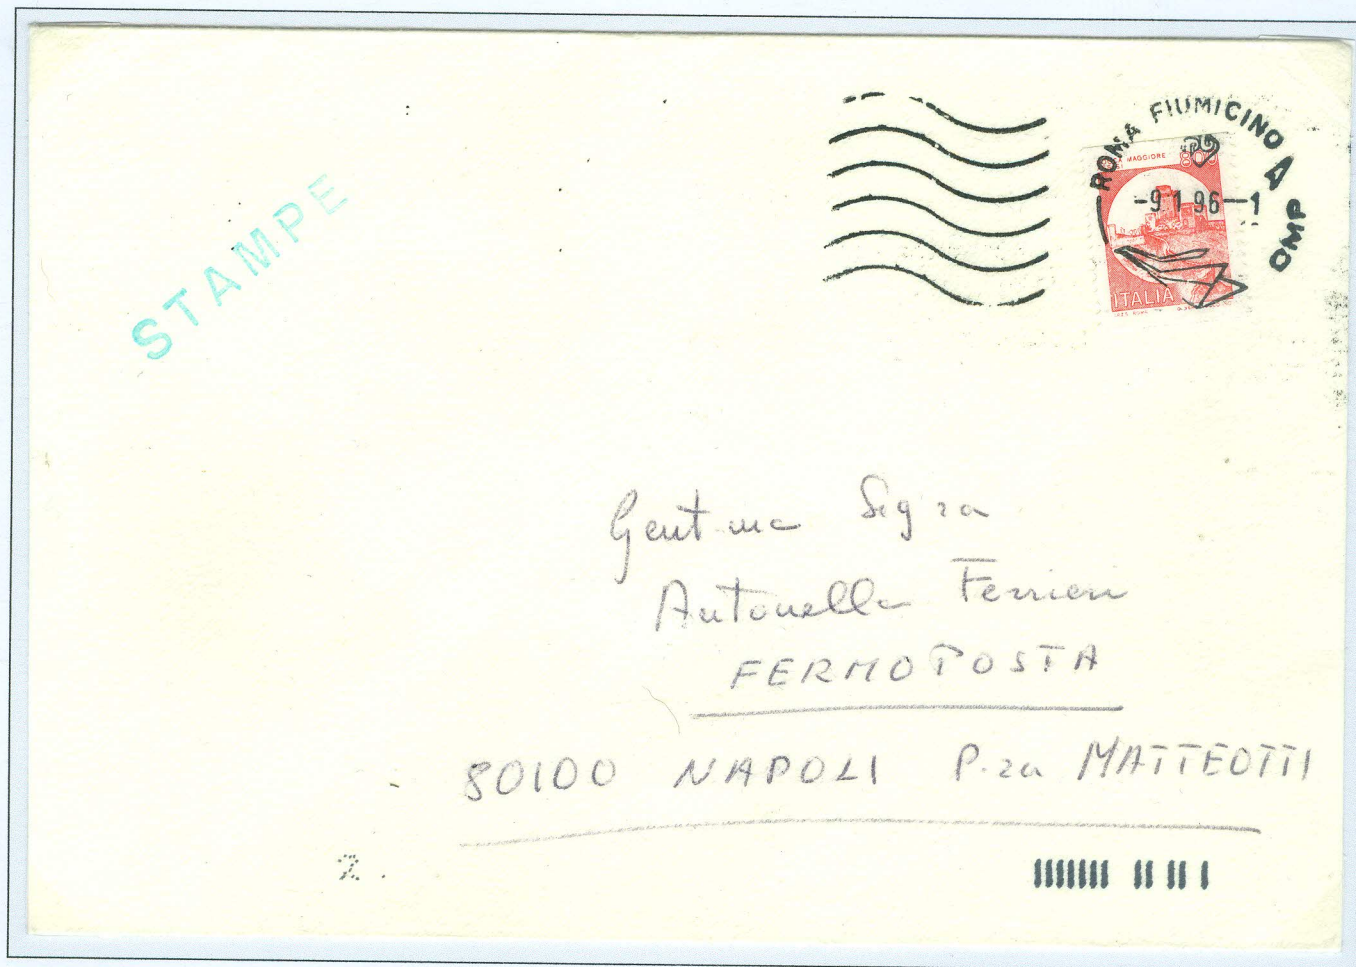 STAMPE
ROMA FIUMICINO A OMP
-9 1 96-1
MAGGIORE 800
ITALIA
Gent.ma Sig.ra
Antonella Ferrieri
FERMOPOSTA
80100 NAPOLI P.za MATTEOTTI
2